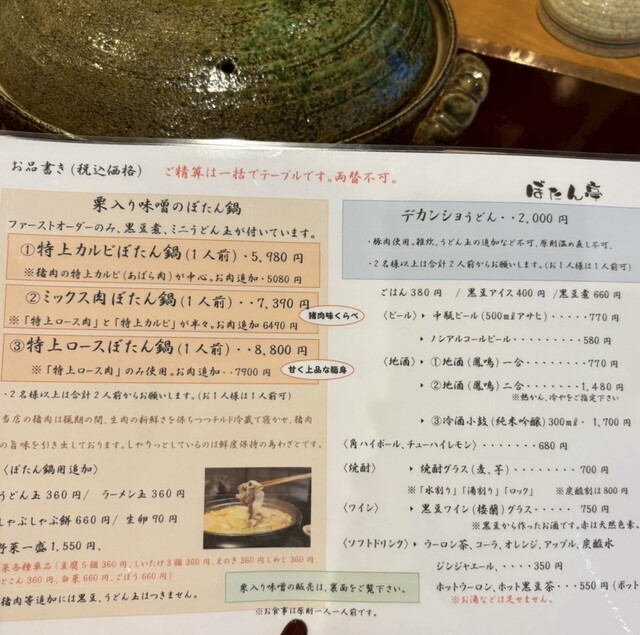 お品書き(税込価格)
ご精算は一括でテーブルです。両替不可。
ぼたん亭
栗入り味噌のぼたん鍋
ファーストオーダーのみ、黒豆煮、ミニうどん玉が付いています。
①特上カルビぼたん鍋(1人前)・5,980円
※猪肉の特上カルビ(あばら肉)が中心。お肉追加・5080円
②ミックス肉ぼたん鍋(1人前)・・7,390円
※「特上ロース肉」と「特上カルビ」が半々。お肉追加6490円
猪肉味くらべ
③特上ロースぼたん鍋(1人前)・・8,800円
※「特上ロース肉」のみ使用。お肉追加・・7900円
甘く上品な脂身
・2名様以上は合計2人前からお願いします。(お1人様は1人前可)
当店の猪肉は猟期の間、生肉の新鮮さを保ちつつチルド冷蔵で寝かせ、猪肉
の旨味を引き出しております。しゃりっとしているのは鮮度保持の為わざとです。
〈ぼたん鍋用追加〉
うどん玉360円/ ラーメン玉360円
しゃぶしゃぶ餅660円/ 生卵90円
野菜一盛1,550円、
菜各種単品(豆腐5個360円、しいたけ3個360円、えのき360円しめじ360円、
どこん360円、白菜660円、ごぼう660円)
猪肉等追加には黒豆、うどん玉はつきません。
デカンショうどん・・2,000円
・豚肉使用。雑炊、うどん玉の追加など不可、原則温め直し不可。
・2名様以上は合計2人前からお願いします。(お1人様は1人前可)
ごはん380円 /黒豆アイス400円 /黒豆煮660円
〈ビール〉▸ 中瓶ビール(500mlアサヒ)・・・・・770円
▸ ノンアルコールビール・・・・・・・・580円
〈地酒〉▸ ①地酒(鳳鳴)一合・・・・・・・770円
▸ ②地酒(鳳鳴)二合・・・・・・1,480円
※熱かん、冷やをご指定下さい
▸ ③冷酒小鼓(純米吟醸)300ml・1,700円
〈角ハイボール、チューハイレモン〉・・・・・・・680円
〈焼酎〉▸ 焼酎グラス(麦、芋)・・・・・・・700円
※「水割り」「湯割り」「ロック」 ※炭酸割は800円
〈ワイン〉▸ 黒豆ワイン(楼蘭)グラス・・・・・750円
※黒豆から作ったお酒です。赤は天然色素。
〈ソフトドリンク〉▸ ウーロン茶、コーラ、オレンジ、アップル、炭酸水
ジンジャエール、・・・・350円
ホットウーロン、ホット黒豆茶・・・550円(ポット
※お湯などは足せません。
栗入り味噌の販売は、裏面をご覧下さい。
※お食事は原則一人一人前です。